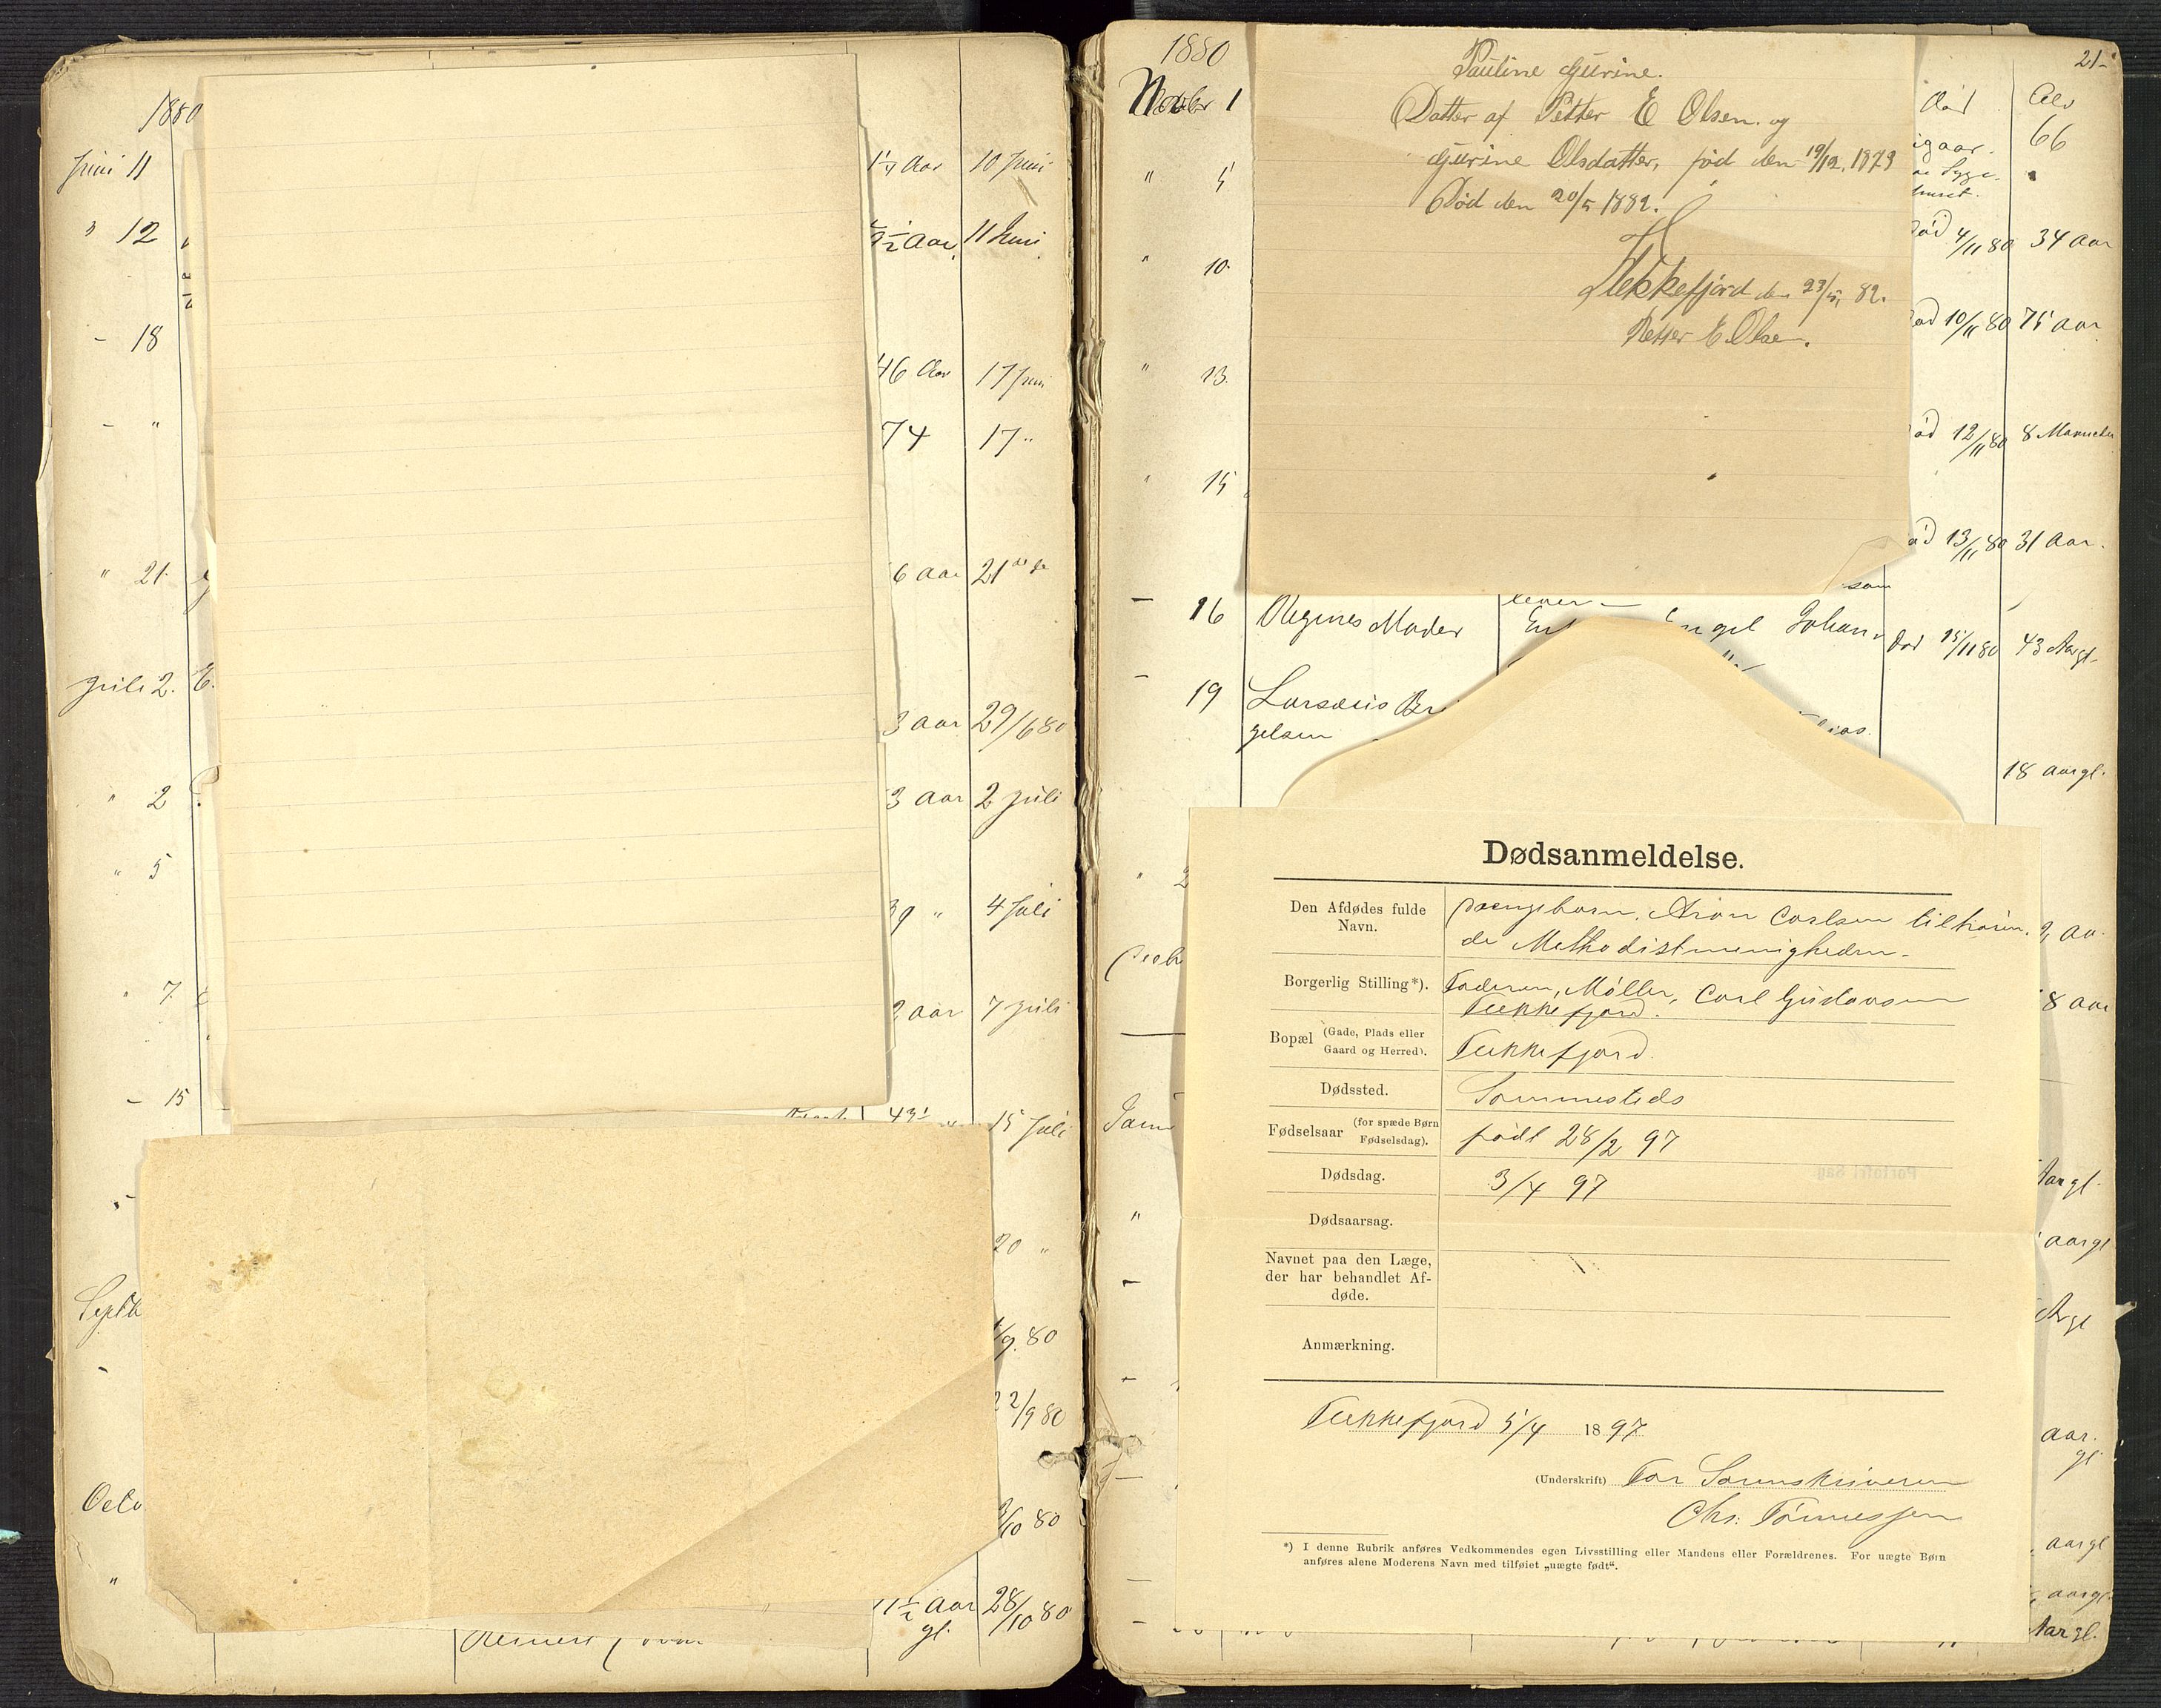 1880
Juni 11
1½ Aar 10 Juni
" 12
½ Aar, 11 Juni
- 18
46 Aar 17 Juni
- "
74 17 "
" 21.
6 aar 21
Juli 2. E.
3 aar 29/6 80
" 2
3 aar 2 Juli
" 5
39 " 4 Juli
" 7.
2 aar 7 Juli
- 15
43½ 15 Juli
20 "
Septb
/9. 80
22/9 80
Octo
/10 80
"
11½ Aar 28/10 80
gl.
1880
21-
Novbr 1
Død Alv
igaar. 66
" 5
Død 4/11 80 34 Aar
" 10.
Død 10/11 80 75 aar
" 13.
Død 12/11 80 8 Maaneder
" 15
Død 13/11 80 31 Aar.
Pauline Gurine.
Datter af Petter E Olsen. og
Gurine Olsdatter, född den 19/12, 1873
Död den 20/5 1882.
Flekkefjord den 23/5, 82.
Petter E. Olsen.
som
lever -
- 16 Regines Moder Johan Død 15/11 80 43 Aargl.
- 19 Larsæus
gelsen
18 aargl.
Decb
8 aar
Janu
Aar gl.
aargl
aar.
gl
aargl
aargl
Aar gl.
Dødsanmeldelse.
Den Afdødes fulde Navn.
Drengebarn, Aron Carlsen tilhören-
de Methodistmenigheden.
Borgerlig Stilling*).
Faderen, Møller, Carl Gustavsen
Flekkefjord.
Bopæl (Gade, Plads eller Gaard og Herred).
Flekkefjord.
Dødssted.
Sammesteds
Fødselsaar (for spæde Børn Fødselsdag).
født 28/2 97
Dødsdag.
3/4 97
Dødsaarsag.
Navnet paa den Læge,
der har behandlet Af-
døde.
Anmærkning.
Flekkefjord 5/4 1897
(Underskrift) For Sorenskriveren
Chr. Tönnessen
*) I denne Rubrik anføres Vedkommendes egen Livsstilling eller Mandens eller Forældrenes. For uægte Børn
anføres alene Moderens Navn med tilføiet „uægte født“.